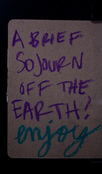 A BRIEF
SOJOURN
OFF THE
EARTH!
enjoy